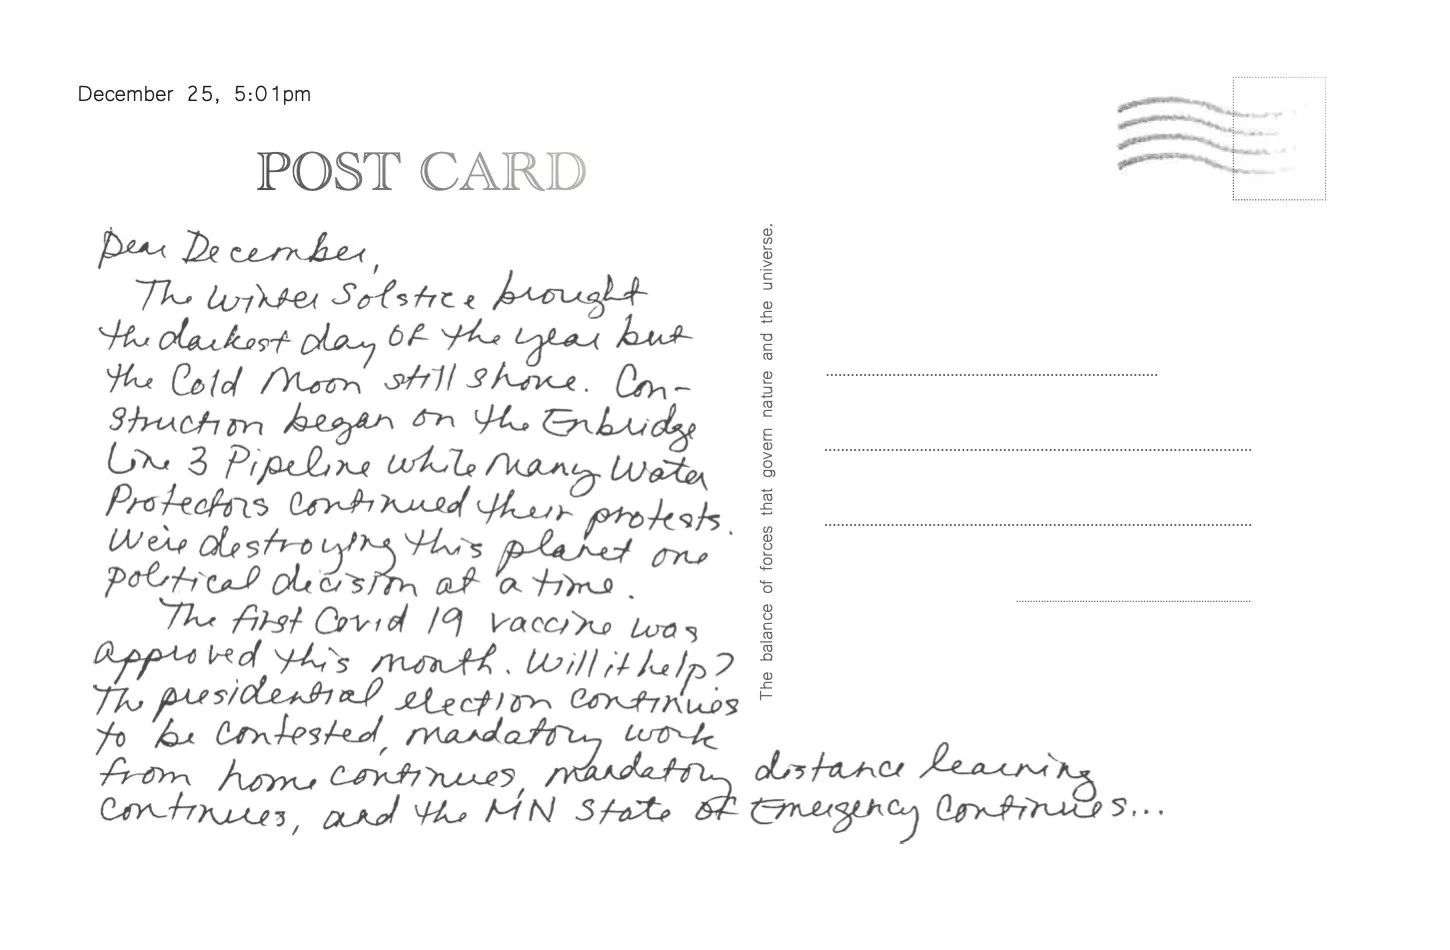 December 25, 5:01pm
POST CARD
Dear December,
The Winter Solstice brought
the darkest day of the year but
the Cold Moon still shone. Con-
struction began on the Enbridge
Line 3 Pipeline while many Water
Protectors continued their protests.
We're destroying this planet one
political decision at a time.
The first Covid 19 vaccine was
approved this month. Will it help?
The presidential election continues
to be contested, mandatory work
from home continues, mandatory distance learning
continues, and the MN State of Emergency continues...
The balance of forces that govern nature and the universe.